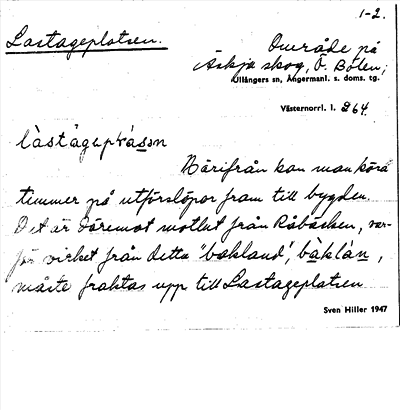 1-2.
Lastageplatsen.
Område på
Äskja skog, Ö. Bölen,
Ullångers sn, Ångermanl. s. doms. tg.
Västernorrl. l. 264.
Härifrån kan man köra
timmer på utförslöpor fram till bygden.
Det är däremot motlut från Råbäcken, var-
för virket från detta "bakland", bàklàn,
måste fraktas upp till Lastageplatsen
Sven Hiller 1947